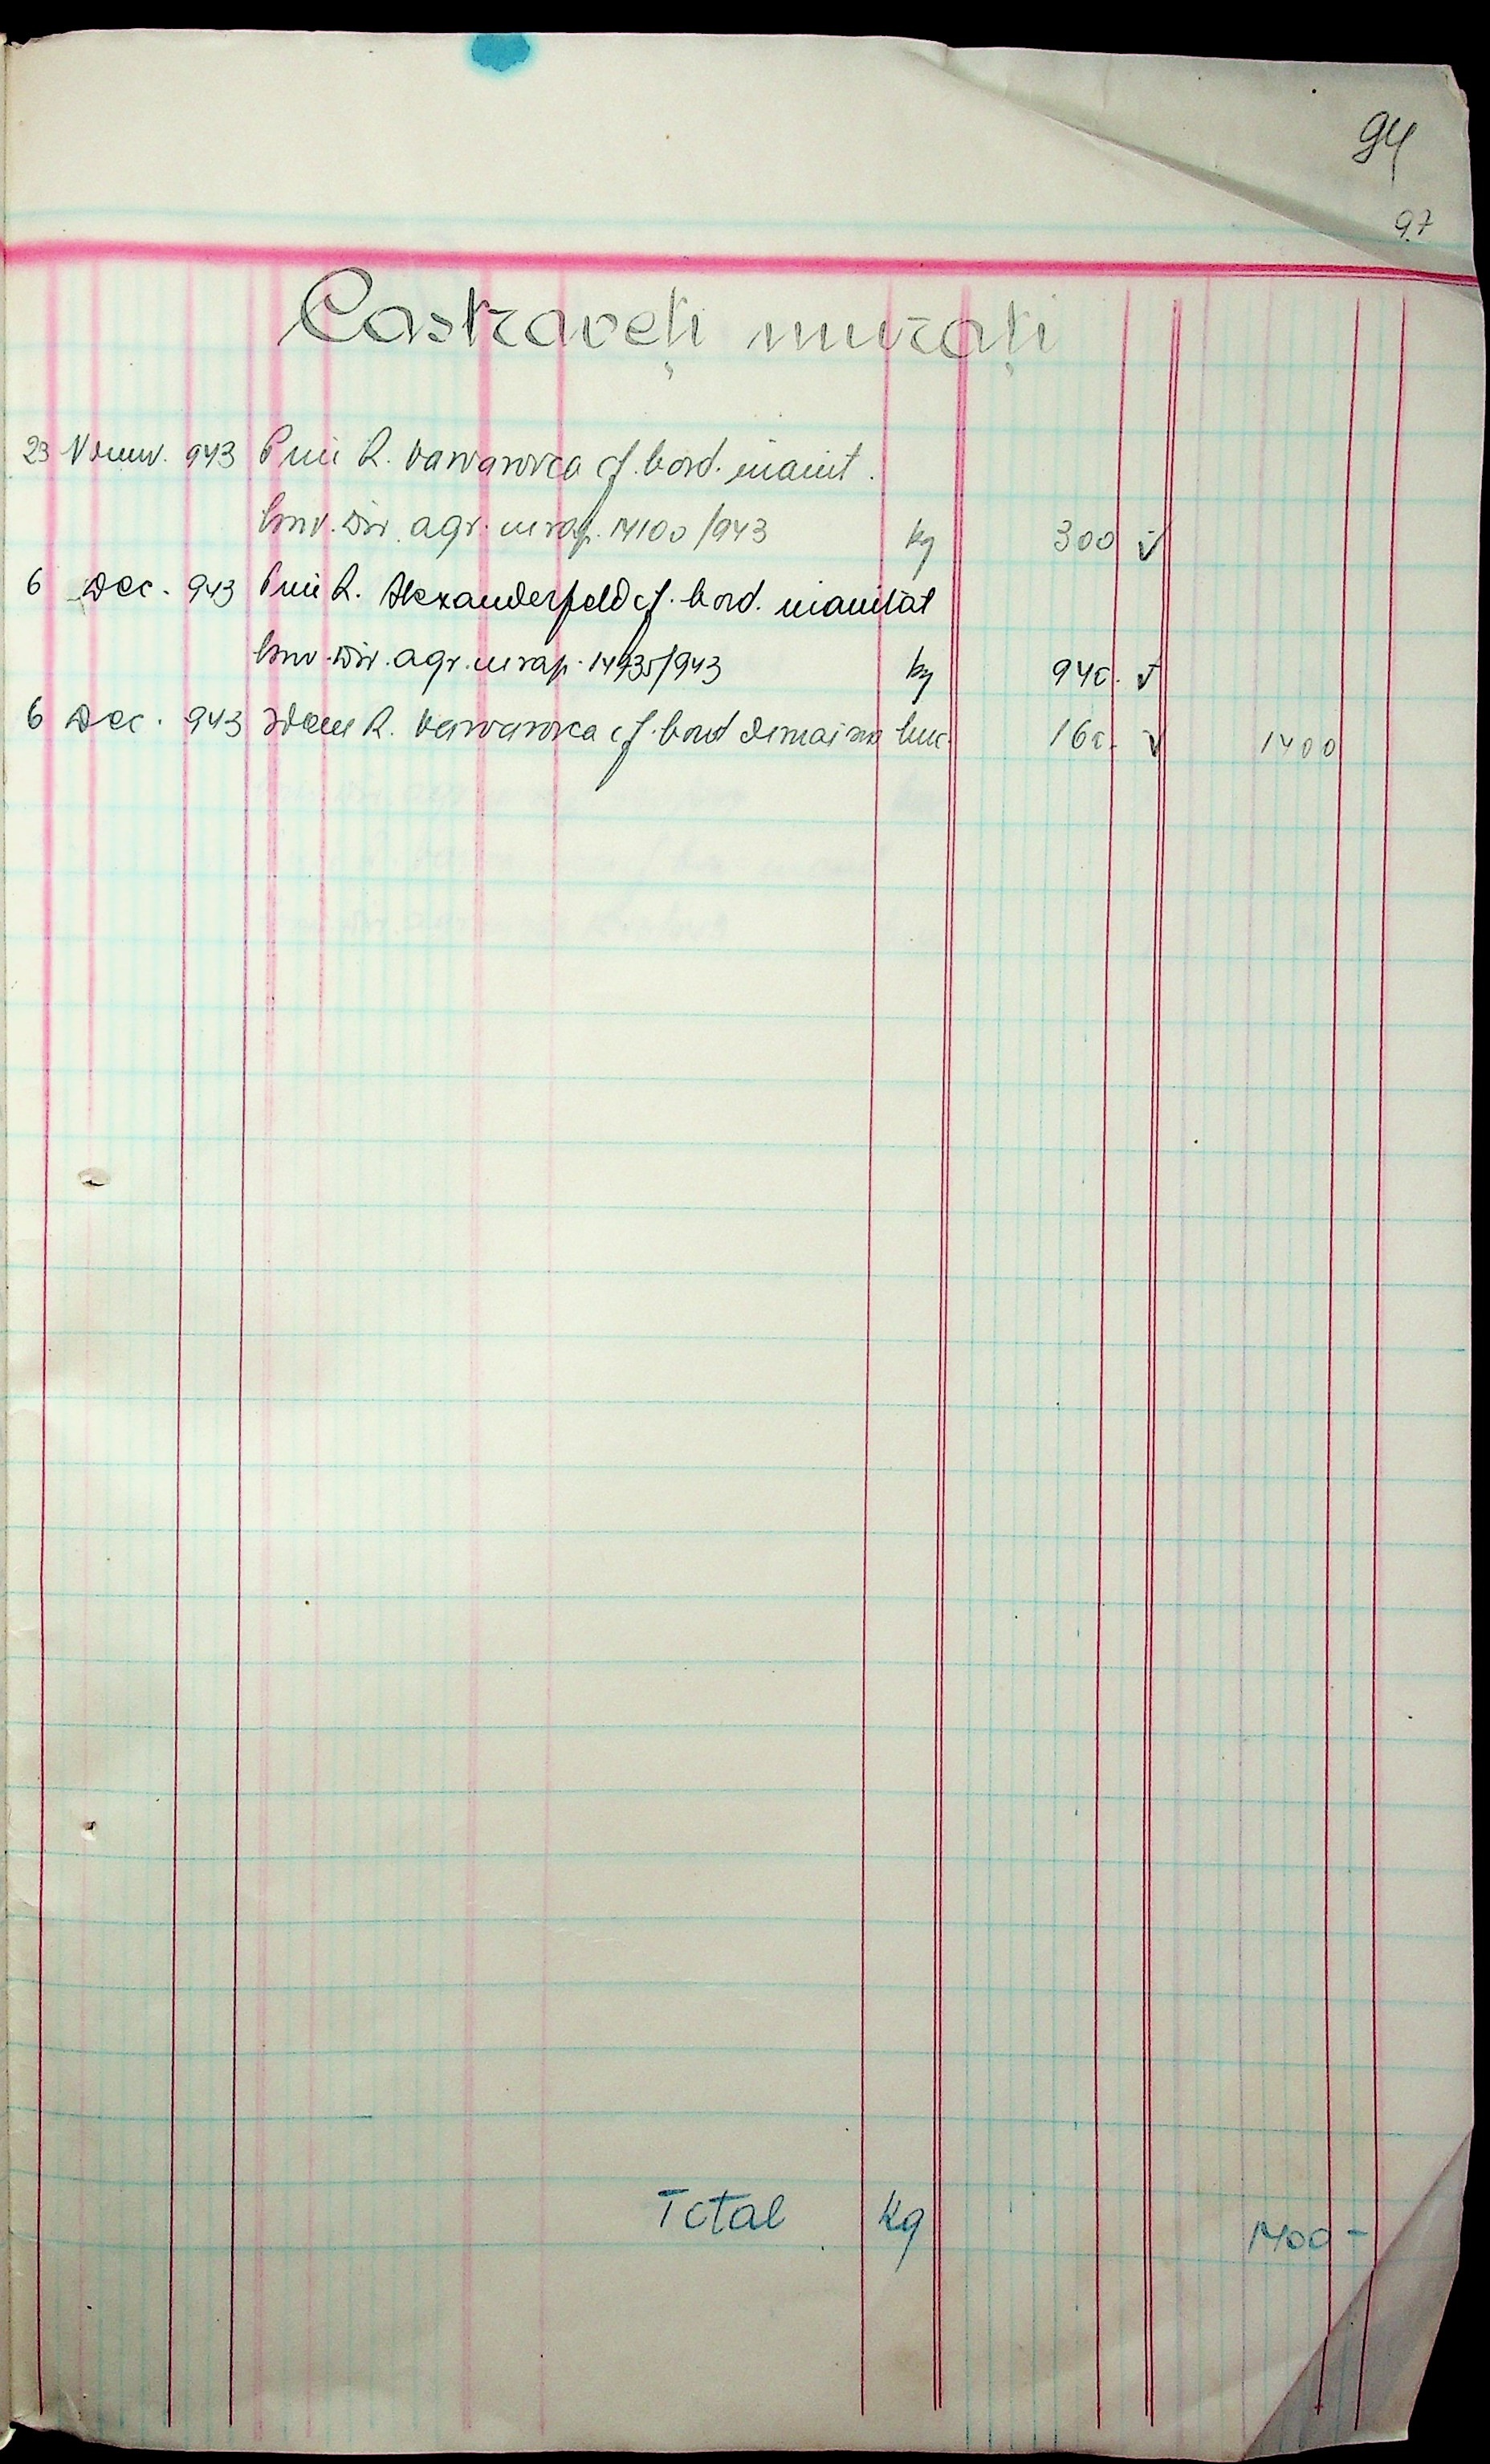 94
97
Castraveți murați
23 Noemv. 943 Prin R. Varvarovca cf. bord. înaint.
Dir. agr. cu rap. 14100/943 kg 300 √
6 Dec. 943 Prin R. Alexanderfeld cf. bord. înaintat
Dir. agr. cu rap. 14935/943 kg 940. √
6 Dec. 943 Idem R. Varvarovca cf. bord de mai sus buc. 160. √ 1400
Total Kg 1400 -